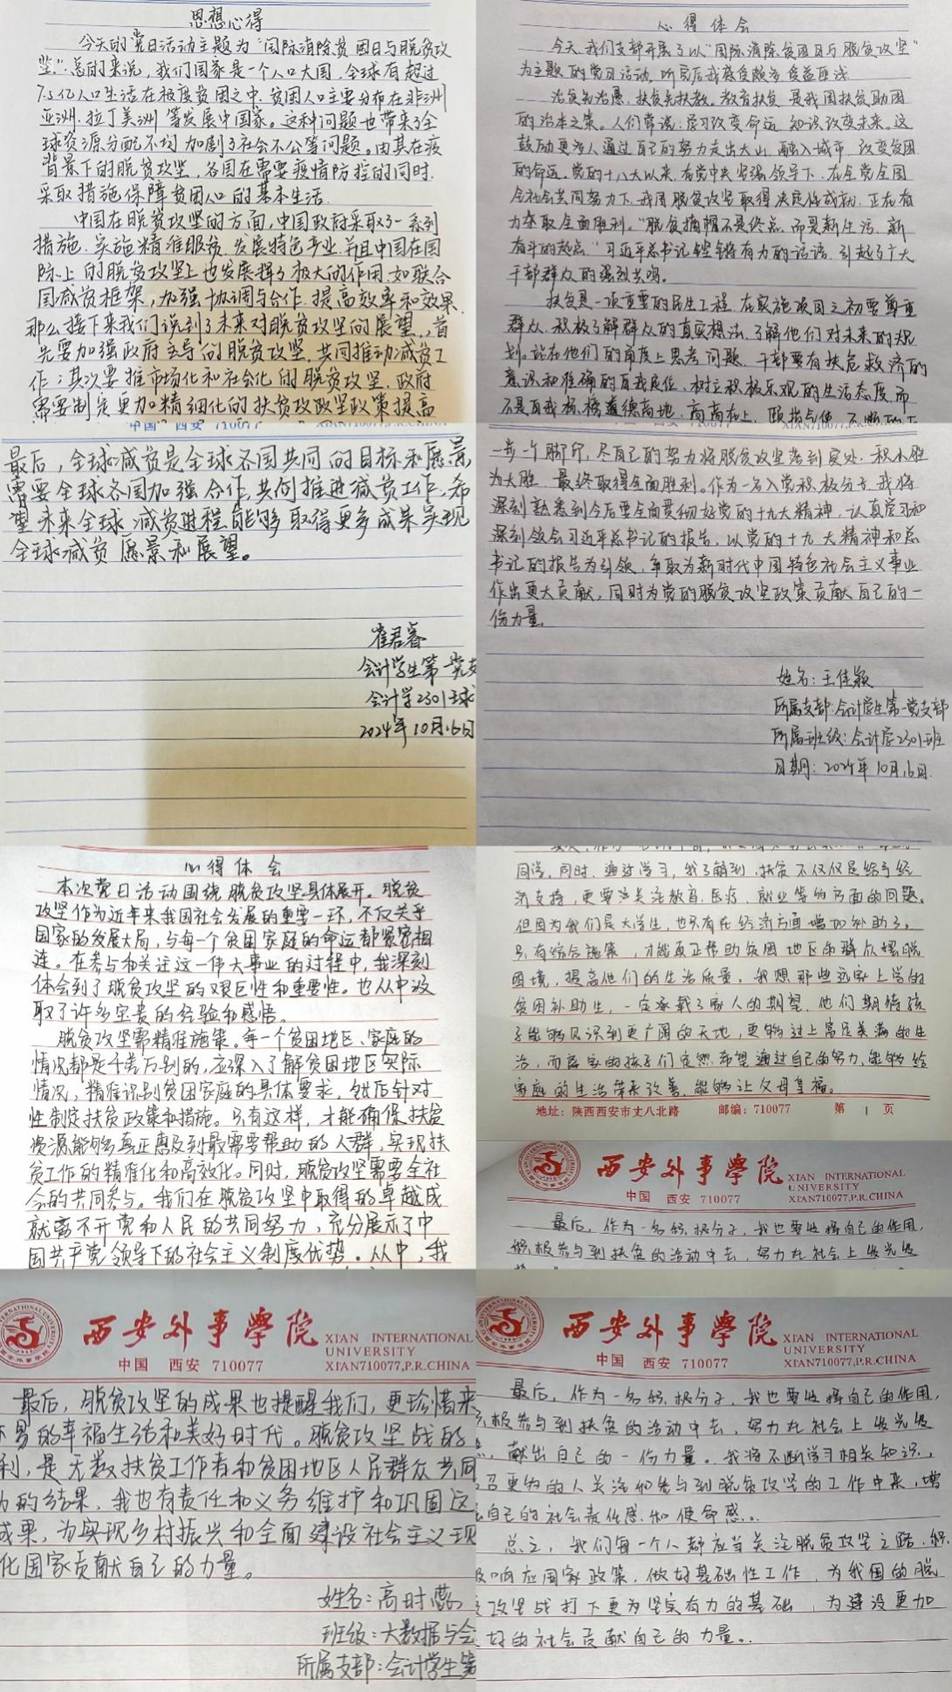 思想心得
今天的党日活动主题为“国际消除贫困日与脱贫攻
坚”.总的来说,我们国家是一个人口大国,全球有超过
7.5亿人口生活在极度贫困之中,贫困人口主要分布在非洲
亚洲、拉丁美洲等发展中国家。这种问题也带来了全
球资源分配不均加剧了社会不公等问题。由其在疫
背景下的脱贫攻坚,各国在需要疫情防控的同时.
采取措施保障贫困人口的基本生活.
中国在脱贫攻坚的方面,中国政府采取了一系列
措施.实施精准服贫,发展特色产业,并且中国在国
际上的脱贫攻坚上也发展挥了极大的作用如联合
国减贫框架,加强协调与合作.提高效率和效果.
那么接下来我们说到了未来对脱贫攻坚的展望,首
先要加强政府主导的脱贫攻坚,共同推动减贫工
作;其次要推市场化和社会化的脱贫攻坚.政府
需要制定更加精细化的扶贫攻坚政策提高
中国 西安 710077
最后,全球减贫是全球各国共同的目标和愿景,
需要全球各国加强合作,共同推进减贫工作,希
望未来全球减贫进程能够取得更多成果实现
全球减贫愿景和展望。
崔君睿
会计学生第一党支
会计学2301班
2024年10月16日
心得体会
今天,我们支部开展了以“国际消除贫困日与脱贫攻坚”
为主题的党日活动,所见后我感受颇多,受益匪浅
治贫先治愚,扶贫先扶教。教育扶贫是我国扶贫助困
的治本之策。人们常说:学习改变命运,知识改变未来。这
鼓励更多人通过自己的努力走出大山,融入城市,改变贫困
的命运。党的十八大以来,在党中央坚强领导下,在全党全国
全社会共同努力下,我国脱贫攻坚取得决定性成就,正在有
力夺取全面胜利。“脱贫摘帽不是终点,而是新生活、新
奋斗的起点”习近平总书记铿锵有力的话语,引起了广大
干部群众的强烈共鸣。
扶贫是一项重要的民生工程,在实施项目之初要尊重
群众,积极了解群众的真实想法,了解他们对未来的规
划。站在他们的角度上思考问题.干部要有扶危救济的
意识和准确的自我定位,树立积极乐观的生活态度,而
不是自我标榜道德高地,高高在上,颐指气使,不断的一
一步一个脚印,尽自己的努力将脱贫攻坚落到实处,积小胜
为大胜,最终取得全面胜利。作为一名入党积极分子,我将
深刻熟悉到今后要全面贯彻好党的十九大精神,认真学习和
深刻领会习近平总书记的报告,以党的十九大精神和总
书记的报告为引领,争取为新时代中国特色社会主义事业
作出更大贡献,同时为党的脱贫攻坚政策贡献自己的一
份力量.
姓名:王佳颖
所属支部:会计学生第一党支部
所属班级:会计学2301班
日期:2024年10月16日
心得体会
本次党日活动围绕脱贫攻坚具体展开。脱贫
攻坚作为近年来我国社会发展的重要一环,不仅关乎
国家的发展大局,与每一个贫困家庭的命运都紧密相
连。在参与和关注这一伟大事业的过程中,我深刻
体会到了脱贫攻坚的艰巨性和重要性。也从中汲
取了许多宝贵的经验和感悟。
脱贫攻坚需精准施策。每一个贫困地区、家庭的
情况都是千差万别的,应深入了解贫困地区实际
情况,精准识别贫困家庭的具体要求,然后针对
性制定扶贫政策和措施。只有这样,才能确保扶贫
资源能够真正惠及到最需要帮助的人群,实现扶
贫工作的精准化和高效化。同时,脱贫攻坚需要全社
会的共同参与。我们在脱贫攻坚中取得的卓越成
就离不开党和人民的共同努力,充分展示了中
国共产党领导下的社会主义制度优势。从中,我
同学,同时,通过学习,我了解到,扶贫不仅仅是给予经
济支持,更要关注教育、医疗、就业等多方面的问题。
但因为我们是大学生,也只有在经济方面增加补助了。
只有综合施策,才能真正帮助贫困地区的群众摆脱
困境,提高他们的生活质量。我想那些远家上学的
贫困补助生,一定承载了家人的期望,他们期待孩
子能够见识到更广阔的天地,更够过上富足美满的生
活,而离家的孩子们定然希望通过自己的努力,能够给
家庭的生活带来改善,能够让父母享福。
地址:陕西西安市丈八北路 邮编:710077 第 1 页
西安外事学院 XIAN INTERNATIONAL
UNIVERSITY
中国 西安 710077 XIAN710077,P.R.CHINA
最后,作为一名积极分子,我也要发挥自己的作用,
积极参与到扶贫的活动中去,努力在社会上发光发
西安外事学院 XIAN INTERNATIONAL
UNIVERSITY
中国 西安 710077 XIAN710077,P.R.CHINA
最后,脱贫攻坚的成果也提醒我们,更珍惜来
不易的幸福生活和美好时代。脱贫攻坚战的
利,是无数扶贫工作者和贫困地区人民群众共同
力的结果,我也有责任和义务维护和巩固这
成果,为实现乡村振兴和全面建设社会主义现
化国家贡献自己的力量。
姓名:高时蕊
班级:大数据与会
所属支部:会计学生第
西安外事学院 XIAN INTERNATIONAL
UNIVERSITY
中国 西安 710077 XIAN710077,P.R.CHINA
最后,作为一名积极分子,我也要发挥自己的作用,
积极参与到扶贫的活动中去,努力在社会上发光发
,献出自己的一份力量。我将不断学习相关知识,
召更多的人关注和参与到脱贫攻坚的工作中来,增
自己的社会责任感和使命感。
总之,我们每一个人都应当关注脱贫攻坚之路,积
极响应国家政策,做好基础性工作,为我国的脱
攻坚战打下更为坚实有力的基础,为建设更加
好的社会贡献自己的力量。